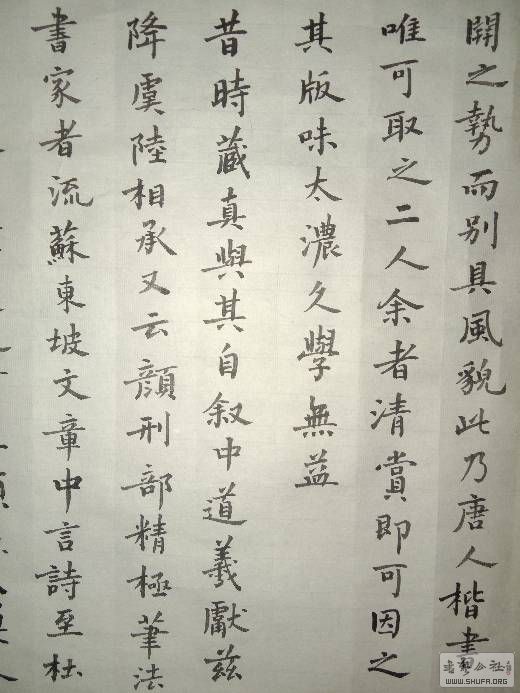 開之勢而別具風貌此乃唐人楷書
唯可取之二人余者清賞即可因之
其版味太濃久學無益
昔時藏真與其自叙中道羲獻茲
降虞陸相承又云顏刑部精極筆法
書家者流蘇東坡文章中言詩至杜
WWW.SHUFA.ORG